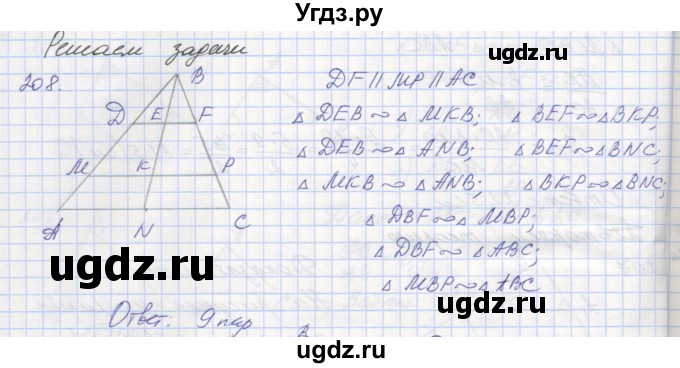 Угдз.ру
Решаем задачи
ugdz.ru ugdz.ru
208.
B
DF || MP || AC
D E F
△ DEB ∾ △ MKB; △ BEF ∾ △ BKP;
△ DEB ∾ △ ANB; △ BEF ∾ △ BNC;
M K P
△ MKB ∾ △ ANB; △ BKP ∾ △ BNC;
A N C
△ DBF ∾ △ MBP;
△ DBF ∾ △ ABC;
ugdz.ru ugdz.ru
△ MBP ∾ △ ABC
Ответ: 9 пар
ugdz.ru